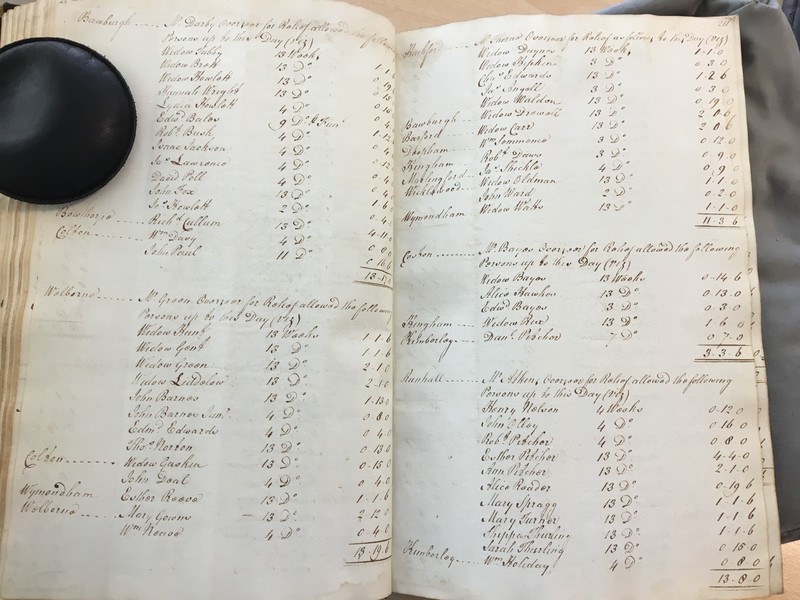 Bawburgh Mr. Darby Overseer for Relief allowed the following
Persons up to this Day (viz)
Widow Tubby 13 Weeks
Widow Brett 13 Do 1-1-6
Widow Howlett 13 Do
Hannah Wright 13 Do
Lydia Howlett 4 Do
Edwd. Bales 9 Do
Robt. Bush 4 Do
Isaac Jackson 4 Do
Jas. Lawrence 4 Do
David Pell 4 Do
John Fox 13 Do
Jas. Howlett 2 Do
Bowthorpe Richd. Cullum 13 Do
Colton Wm. Davy 4 Do
John Paul 11 Do
Welborne Mr. Green Overseer for Relief allowed the following
Persons up to this Day (viz)
Widow Hunt 13 Weeks 1-1-6
Widow Gent 13 Do 1-1-6
Widow Green 13 Do 2-1-0
Widow Liddelow 13 Do 2-1-0
John Barnes 13 Do 1-13-0
John Barnes Junr. 4 Do 0 8 0
Edmd. Edwards 4 Do 0 4 0
Thos. Norton 13 Do 0 13 0
Colton Widow Gaskin 13 Do 0-13-0
John Deal 4 Do 0 4 0
Wymondham Esther Reeve 13 Do 1-1-6
Welborne Mary Gowns 13 Do 2-12-0
Wm. Reeve 4 Do 0-4-0
13-19-6
Mr. Thorne Overseer for Relief as follows to this Day (viz)
Widow Daynes 13 Weeks 1-1-0
Widow Pipkin 3 Do 0 3 0
Chas. Edwards 13 Do 1-2-6
Jas. Ingoll 3 Do 0 3 0
Widow Waldon 13 Do 0 19 0
Bawburgh Widow Drewell 13 Do
Barford Widow Carr 13 Do 2 0 6
Deerham Wm. Lommence 3 Do 0-12-0
Hingham Robt. Daws 3 Do 0 9 0
Marlingford Jas. Thickle 4 Do 0 9 0
Wicklewood Widow Oldman 13 Do
John Ward 2 Do 0 2 0
Wymondham Widow Watts 13 Do 1-1-0
11-3-6
Coston Mr. Bayes Overseer for Relief allowed the following
Persons up to this Day (viz)
Widow Bayes 13 Weeks 0-14-6
Alice Hawkes 13 Do 0-13-0
Edwd. Bayes 3 Do 0-3-0
Hingham Widow Rix 13 Do 1 6 0
Kimberley Danl. Petcher 7 Do 0 7 0
3-3-6
Runhall Mr. Athow Overseer for Relief allowed the following
Persons up to this Day (viz)
Henry Nelson 4 Weeks 0-12-0
John Olley 4 Do 0 16 0
Robt. Petcher 4 Do 0 8 0
Esther Petcher 13 Do 4-4-0
Ann Petcher 13 Do 2-1-0
Alice Reader 13 Do 0-19 6
Mary Spragg 13 Do 1-1-6
Mary Turner 13 Do 1-1-6
Thurling 13 Do 1-1-6
Sarah Thurling 13 Do 0 15 0
Kimberley Wm. Holiday 4 Do 0-8-0
13-8-0